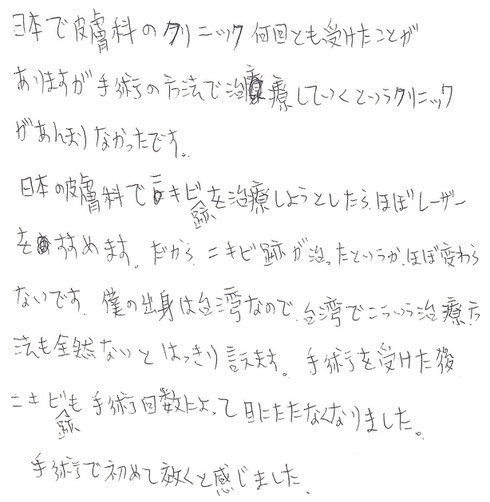 日本で皮膚科のクリニック何回とも受けたことが
ありますが手術の方法で治療していくというクリニック
があんまりなかったです。
日本の皮膚科でニキビ跡を治療しようとしたら、ほぼレーザー
をおすすめます。だから、ニキビ跡が治ったというか、ほぼ変わら
ないです。僕の出身は台湾なので、台湾でこういう治療方
法も全然ないとはっきり言えます。手術を受けた後
ニキビ跡も手術回数によって目にたたなくなりました。
手術で初めて効くと感じました。